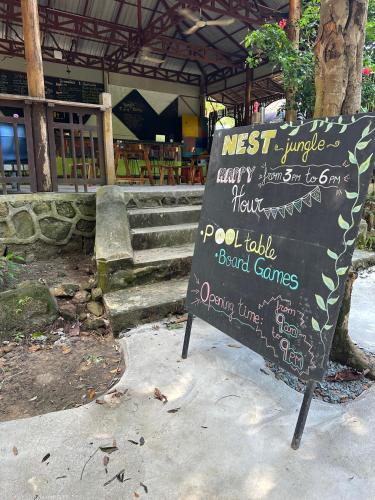 NEST jungle
HAPPY Hour from 3PM to 6PM
POOL table
Board Games
Opening time: from 9am to 9PM